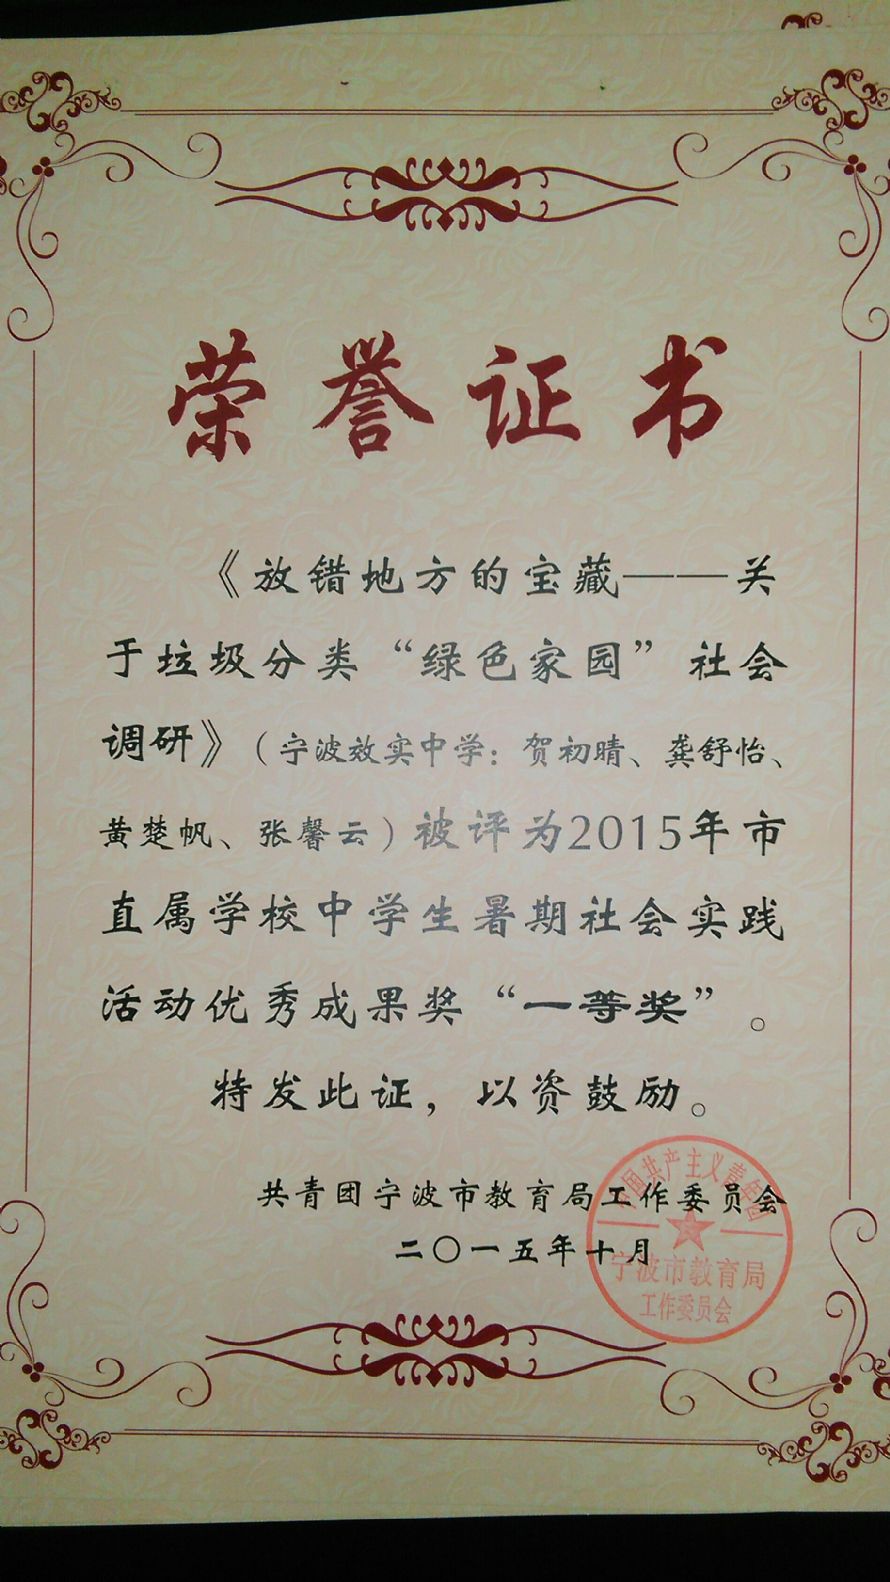 荣誉证书
《放错地方的宝藏——关
于垃圾分类“绿色家园”社会
调研》（宁波效实中学：贺初晴、龚舒怡、
黄楚帆、张馨云）被评为2015年市
直属学校中学生暑期社会实践
活动优秀成果奖“一等奖”。
特发此证，以资鼓励。
共青团宁波市教育局工作委员会
二〇一五年十月
中国共产主义青年团
宁波市教育局
工作委员会